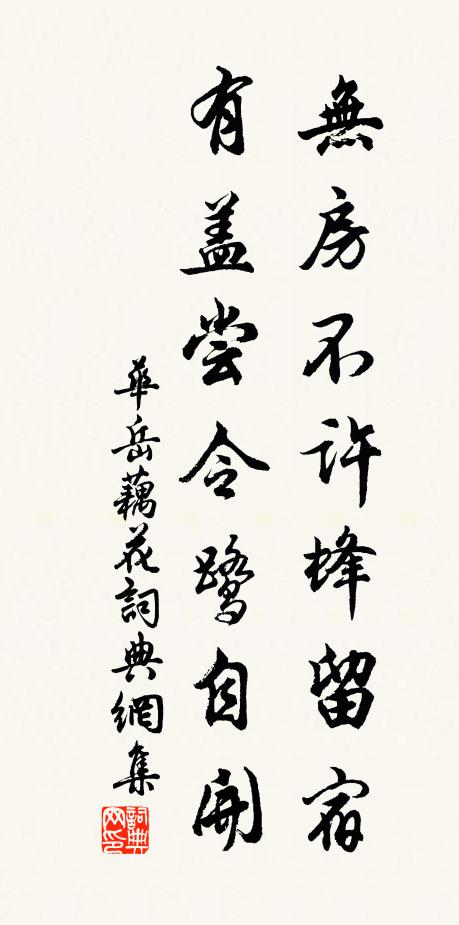 無房不許蜂留宿
有盖尝令鹭自開
華岳藕花詞典網集
詞典网印